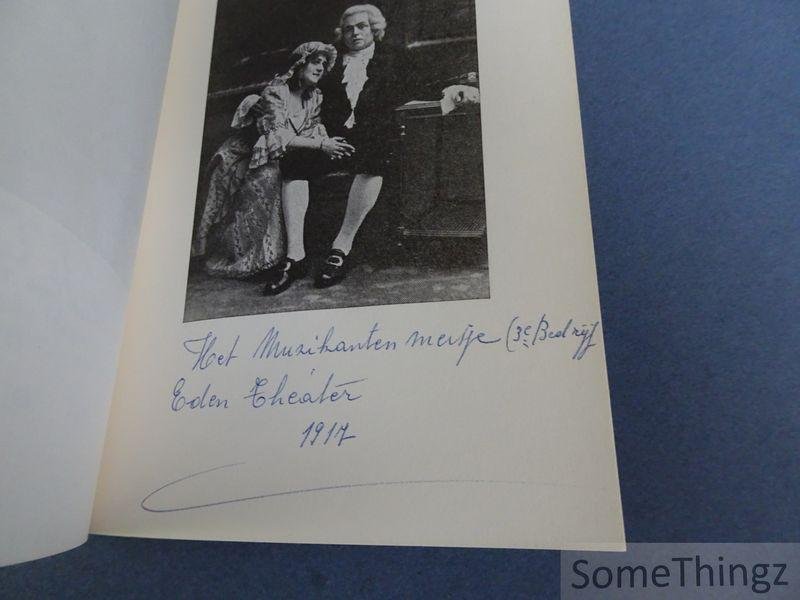 Het Muzikanten meisje (3e Bedrijf
Eden Theáter
1917
SomeThingz